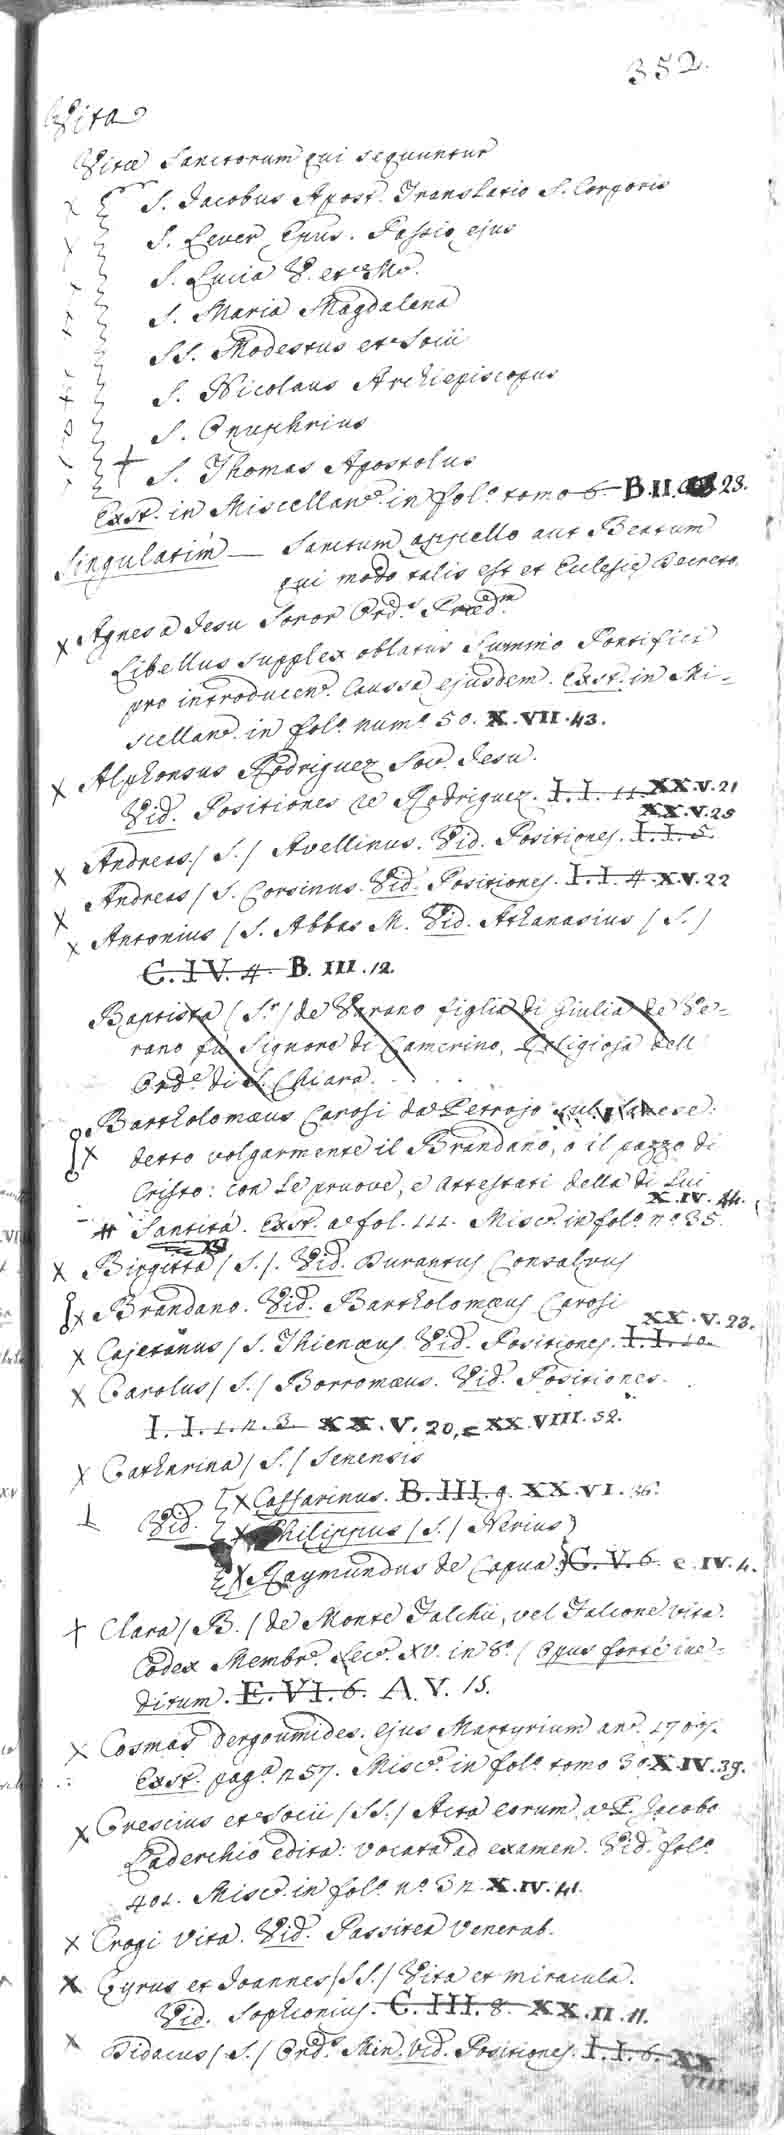 352.
Vita
Vitæ Sanctorum qui sequuntur
S. Jacobus Apost. Translatio S. Corporis
S. Lever Epus. Passio ejus
S. Lucia V. et M.
S. Maria Magdalena
SS. Modestus et Socii
S. Nicolaus Archiepiscopus
S. Onuphrius
S. Thomas Apostolus
Exst. in Miscellan. in fol. tomo 6. B.II. 23.
Singulatim — Sanctum appello aut Beatum
qui modo talis est ex Eclesię Decreto.
X Agnes a Jesu Soror Ord.s Præd.m
Libellus supplex oblatus Summo Pontifici
pro introducen. Caussa ejusdem. Exst. in Mi-
scellan. in fol. num. 50. X.VII.43.
X Alphonsus Rodriguez Soc. Jesu.
Vid. Positiones de Rodriguez. I.I.11. XX.V.21
XX.V.25
X Andreas /S./ Avellinus. Vid. Positiones. I.I.5.
X Andreas /S. Corsinus. Vid. Positiones. I.I.4. XX.V.22
X Antonius /S. Abbas M. Vid. Athanasius /S./
C.IV.4. B.III.12.
Baptista /S./ de Varano figlia di Giulia de Ve-
rano fu Signore di Camerino, Religiosa dell
Ord.e di S. Chiara.
X Bartholomæus Carosi da Petrojo
detto volgarmente il Brandano, o il pazzo di
Cristo: con le pruove, e attestati della di Lui
X.IV.44.
# Santità. Exst. a fol. 111. Misc. in fol. n.o 35.
X Birgitta /S./. Vid. Durantus Consalvus
X Brandano. Vid. Bartholomæus Carosi
XX.V.23.
X Cajetanus /S. Thienæus. Vid. Positiones. I.I.10.
X Carolus /S./ Borromæus. Vid. Positiones.
I.I.1.2.3. XX.V.20, e XX.VIII.52.
X Catharina /S./ Senensis
Vid. X Caffarinus. B.III.9. XX.VI.36.
X Philippus /S./ Nerius
X Raymundus de Capua. C.V.6. e.IV.4.
† Clara /B./ de Monte Falchii, vel Falcone vita.
Codex Membr. Sec. XV. in 8.o / Opus fortè ine-
ditum. E.VI.6. A.V.15.
X Cosmas Dergoumides. ejus Martyrium an. 1707.
Exst. pag.a 257. Misc. in fol. tomo 30 X.IV.39.
X Crescius et Socii /SS./ Acta eorum a P. Jacobo
Laderchio edita: vocata ad examen. Vid. fol.o
401. Misc. in fol. n.o 32. X.IV.41.
X Crogi Vita. Vid. Passitea Venerab.
X Cyrus et Joannes /SS./ Vita et miracula.
Vid. Sophronius. C.III.8. XX.II.11.
X Didacus /S./ Ord.s Min. vid. Positiones. I.I.6. XX
VIII